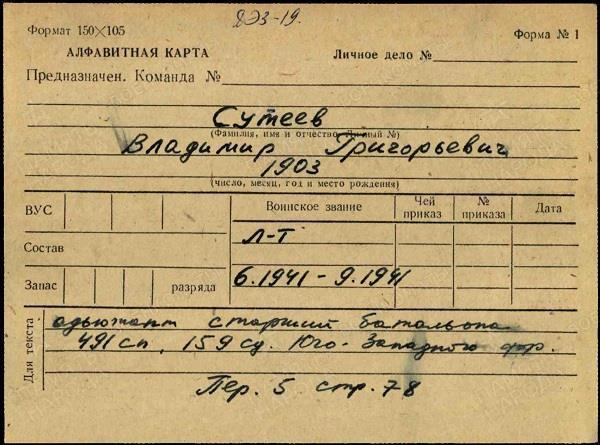 ДЭЗ-19.
Формат 150×105
Форма № 1
АЛФАВИТНАЯ КАРТА
Личное дело №
Предназначен. Команда №
Сутеев
(Фамилия, имя и отчество. Личный №)
Владимир Григорьевич
1903
(число, месяц, год и место рождения)
ВУС
Воинское звание
Чей приказ
№ приказа
Дата
Состав
л-т
Запас
разряда
6.1941 – 9.1941
Для текста
адъютант старший батальона
491 сп, 159 сд. Юго-Западного фр.
Пер. 5 стр. 78